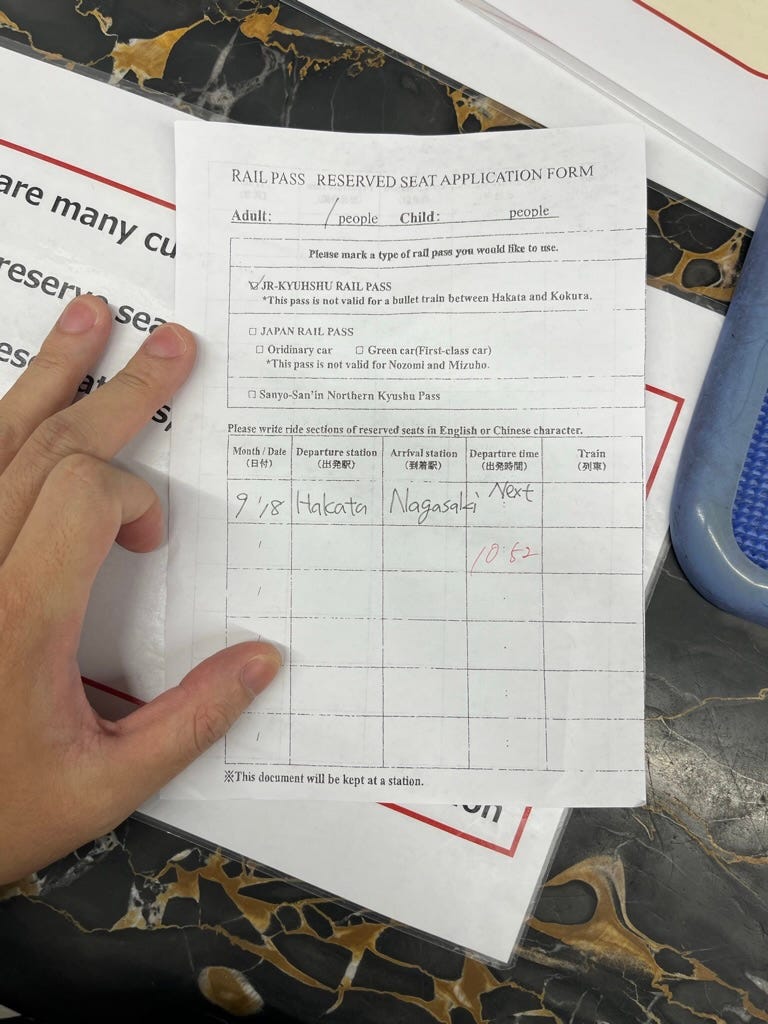 are many cu
reserve sea
RAIL PASS RESERVED SEAT APPLICATION FORM
Adult: / people Child: people
Please mark a type of rail pass you would like to use.
☑ JR-KYUHSHU RAIL PASS
*This pass is not valid for a bullet train between Hakata and Kokura.
□ JAPAN RAIL PASS
□ Oridinary car □ Green car(First-class car)
*This pass is not valid for Nozomi and Mizuho.
□ Sanyo-San'in Northern Kyushu Pass
Please write ride sections of reserved seats in English or Chinese character.
Month / Date Departure station Arrival station Departure time Train
(日付) (出発駅) (到着駅) (出発時間) (列車)
9 / 18 Hakata Nagasaki Next
/ 10:52
/ :
/ :
/ :
/ :
※This document will be kept at a station.
on